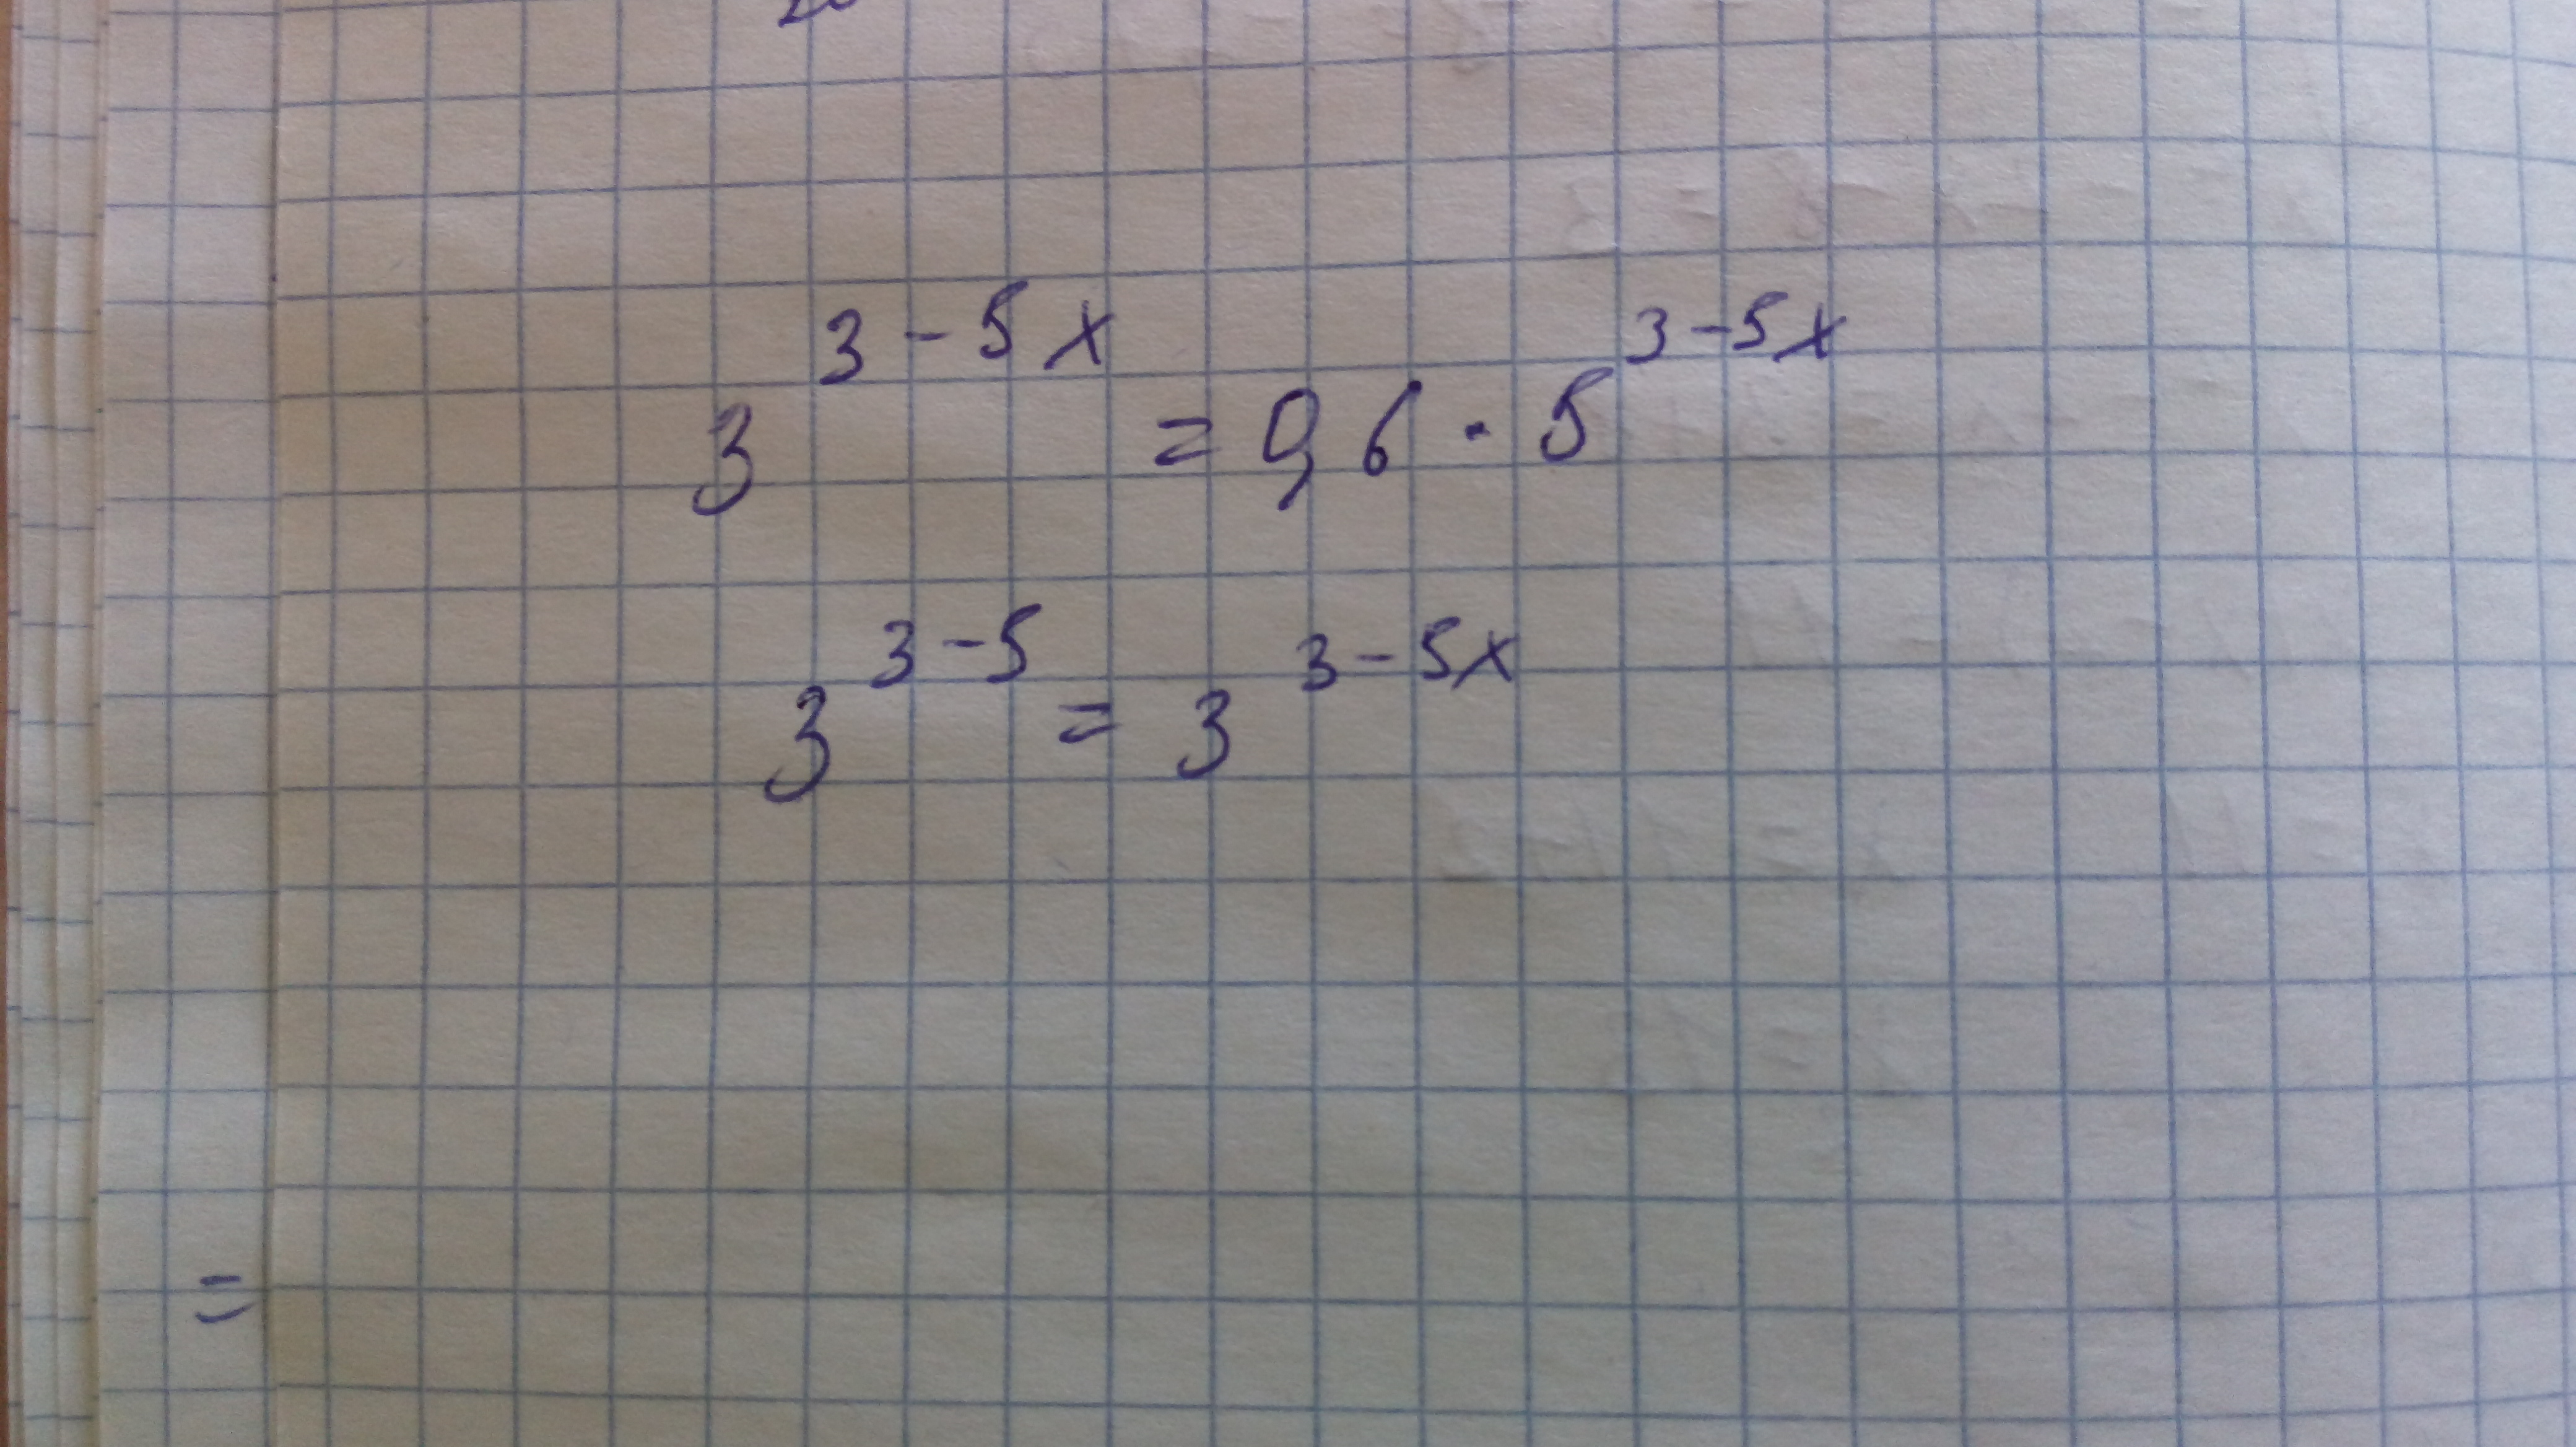 3^{3-5x} = 0,6 · 5^{3-5x}
3^{3-5} = 3^{3-5x}
=